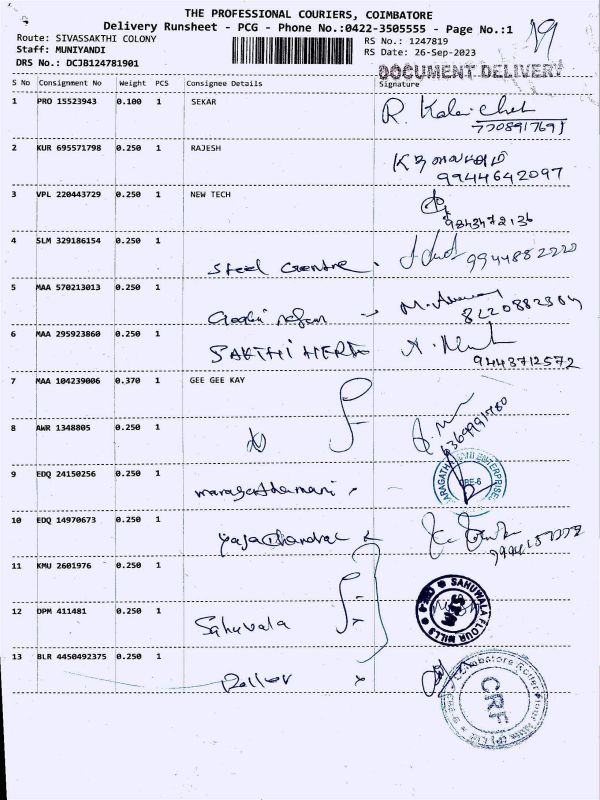 THE PROFESSIONAL COURIERS, COIMBATORE
Delivery Runsheet - PCG - Phone No.:0422-3505555 - Page No.:1
19
Route: SIVASSAKTHI COLONY
RS No.: 1247819
Staff: MUNIYANDI
RS Date: 26-Sep-2023
DRS No.: DCJB124781901
DOCUMENT DELIVERY
S No Consignment No Weight PCS Consignee Details Signature
1 PRO 15523943 0.100 1 SEKAR
R.
7708917691
2 KUR 695571798 0.250 1 RAJESH
9944642097
3 VPL 220443729 0.250 1 NEW TECH
9843472136
4 SLM 329186154 0.250 1
Steel Centre.
9944882220
5 MAA 570213013 0.250 1
6 MAA 295923860 0.250 1
SAKTHI HERB
9443712572
7 MAA 104239006 0.370 1 GEE GEE KAY
8 AWR 1348805 0.250 1
9 EDQ 24150256 0.250 1
maragathamani
ENTERPRISES
CBE-6
10 EDQ 14970673 0.250 1
11 KMU 2601976 0.250 1
12 DPM 411481 0.250 1
Sahuvala
SAHUWALA FLOUR MILLS
13 BLR 4450492375 0.250 1
Roller
Coimbatore Roller Flour Mills (P) Ltd
CRF